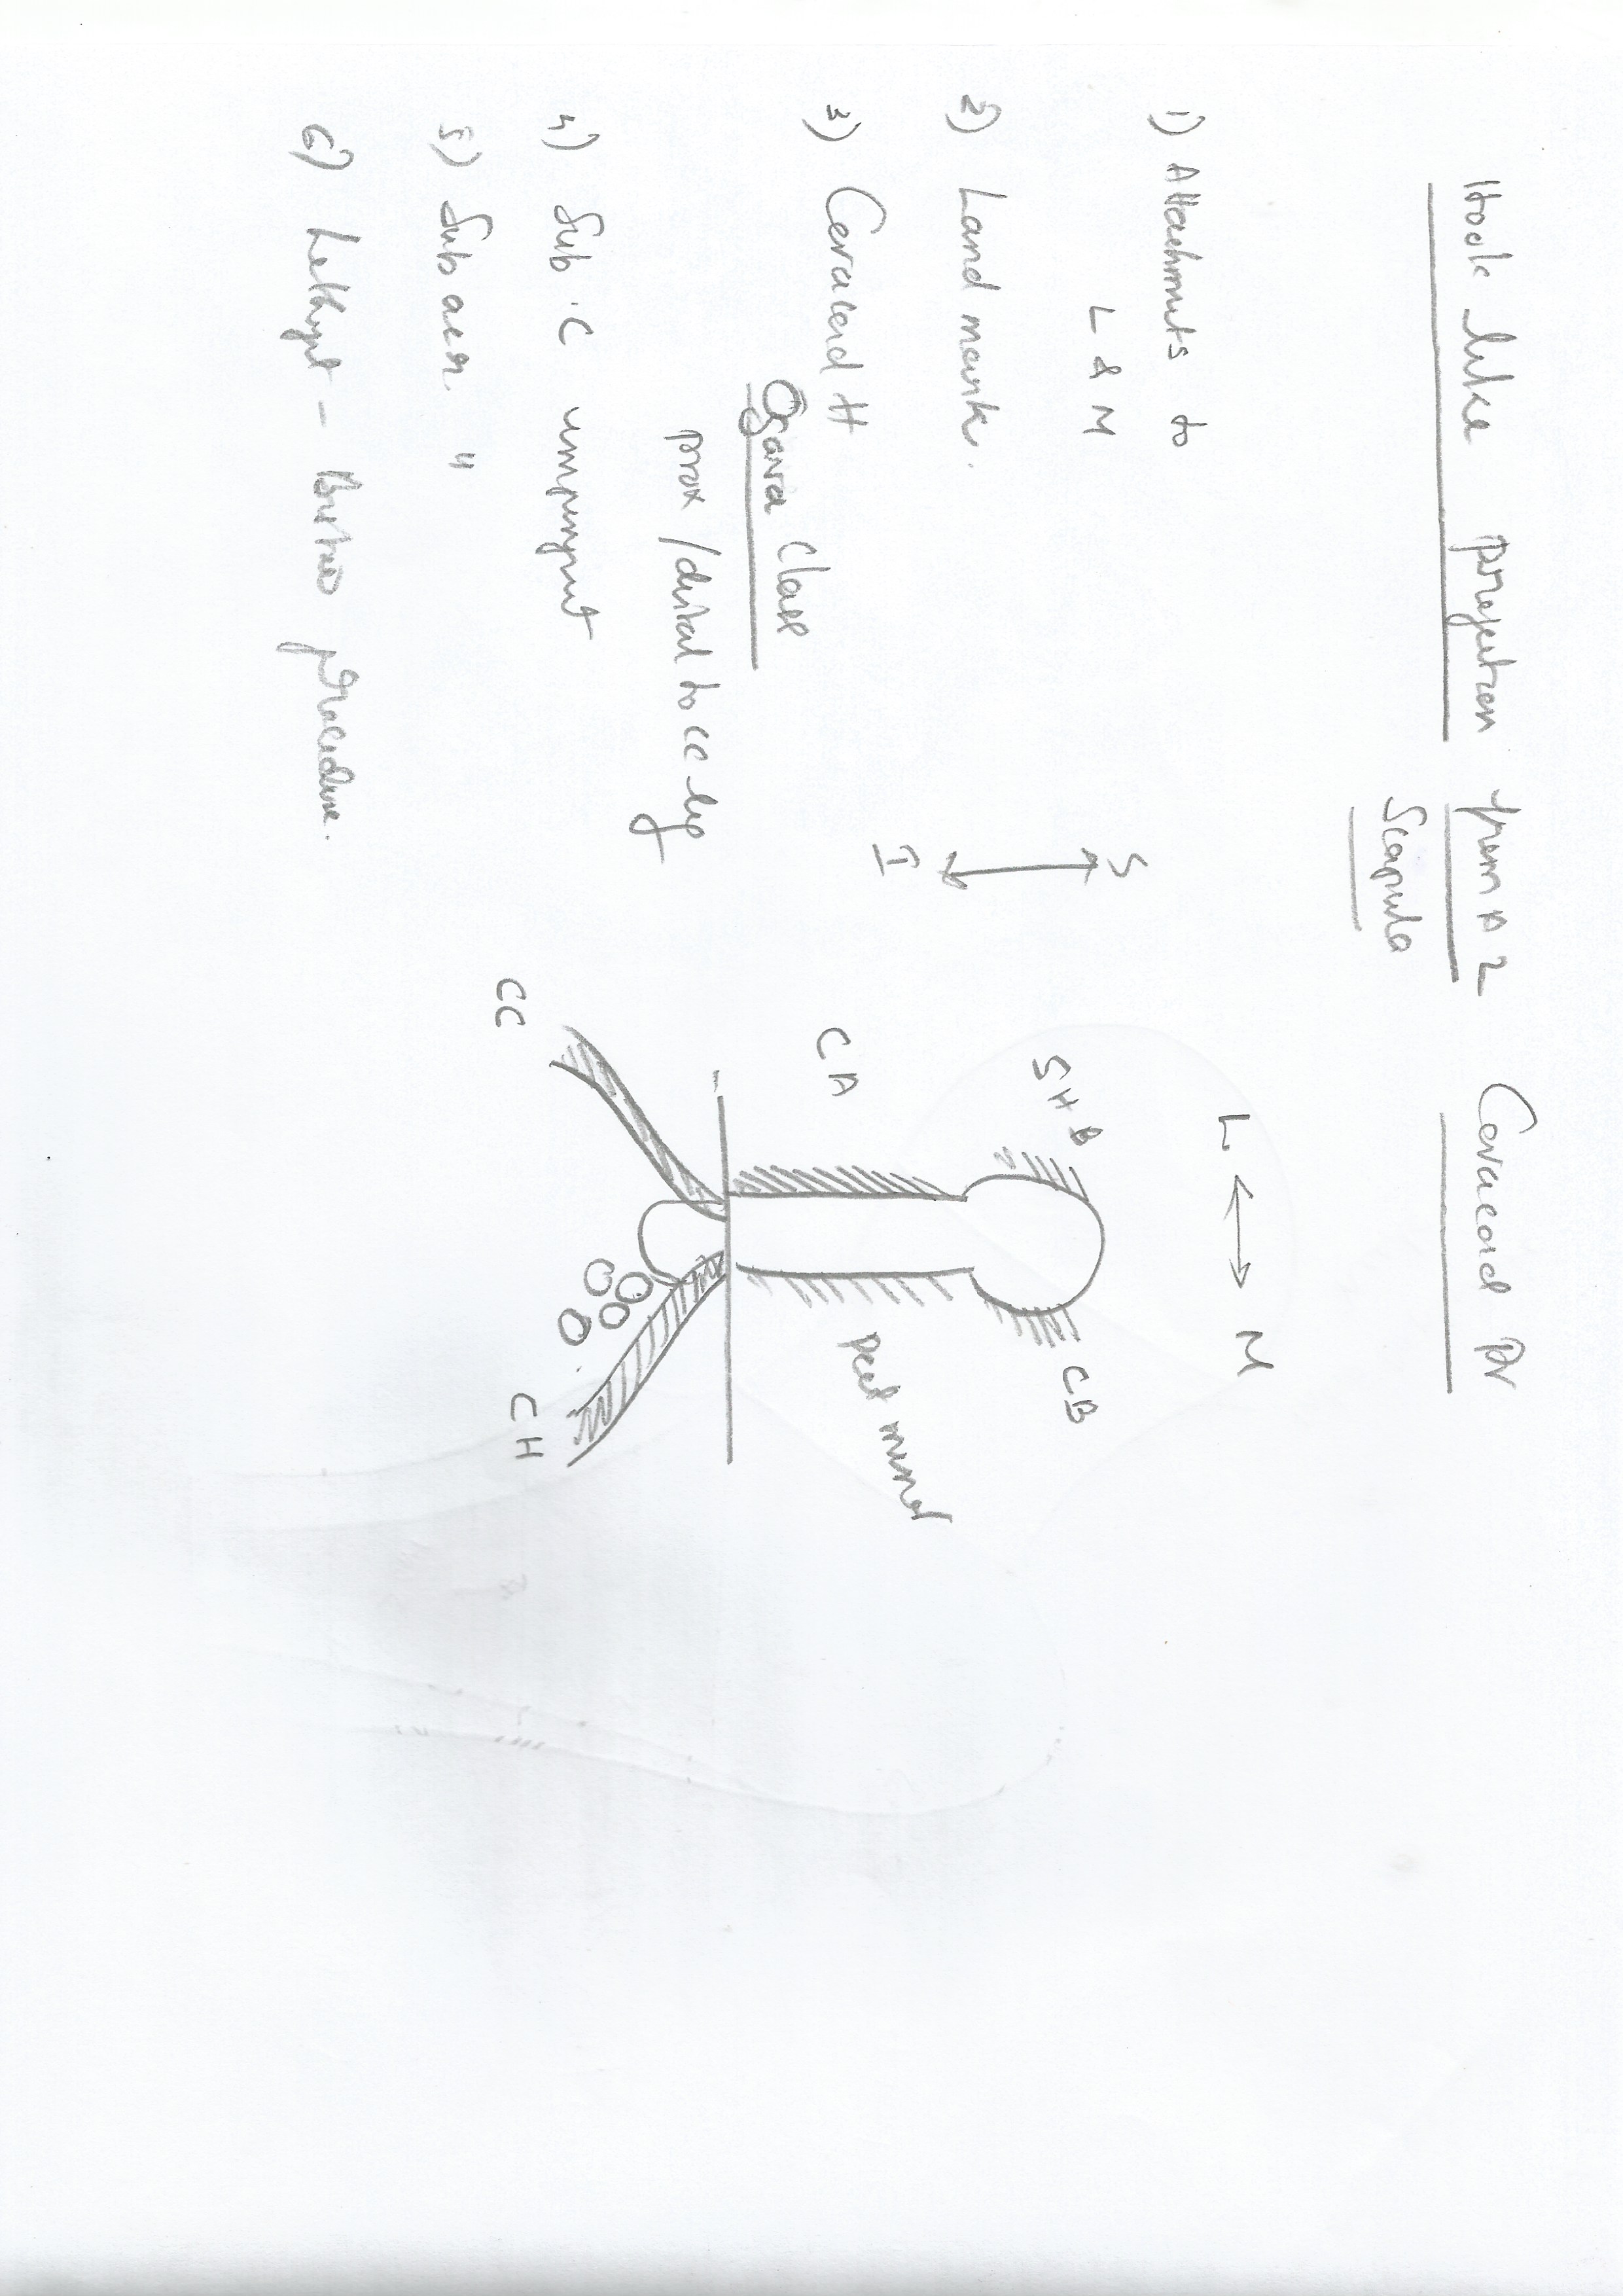 Hook like projection from A 2 Coracoid Pr
Scapula
1) Attachments to
L & M
2) Land mark.
3) Coracoid #
Ogawa Class
prox / distal to CC lig
4) Sub C impingmt
5) Sub acr. "
6) Letharjet - Bristow procedure.
L ↔ M
S
I
SHB
CB
CA
pect minor
CC
CH